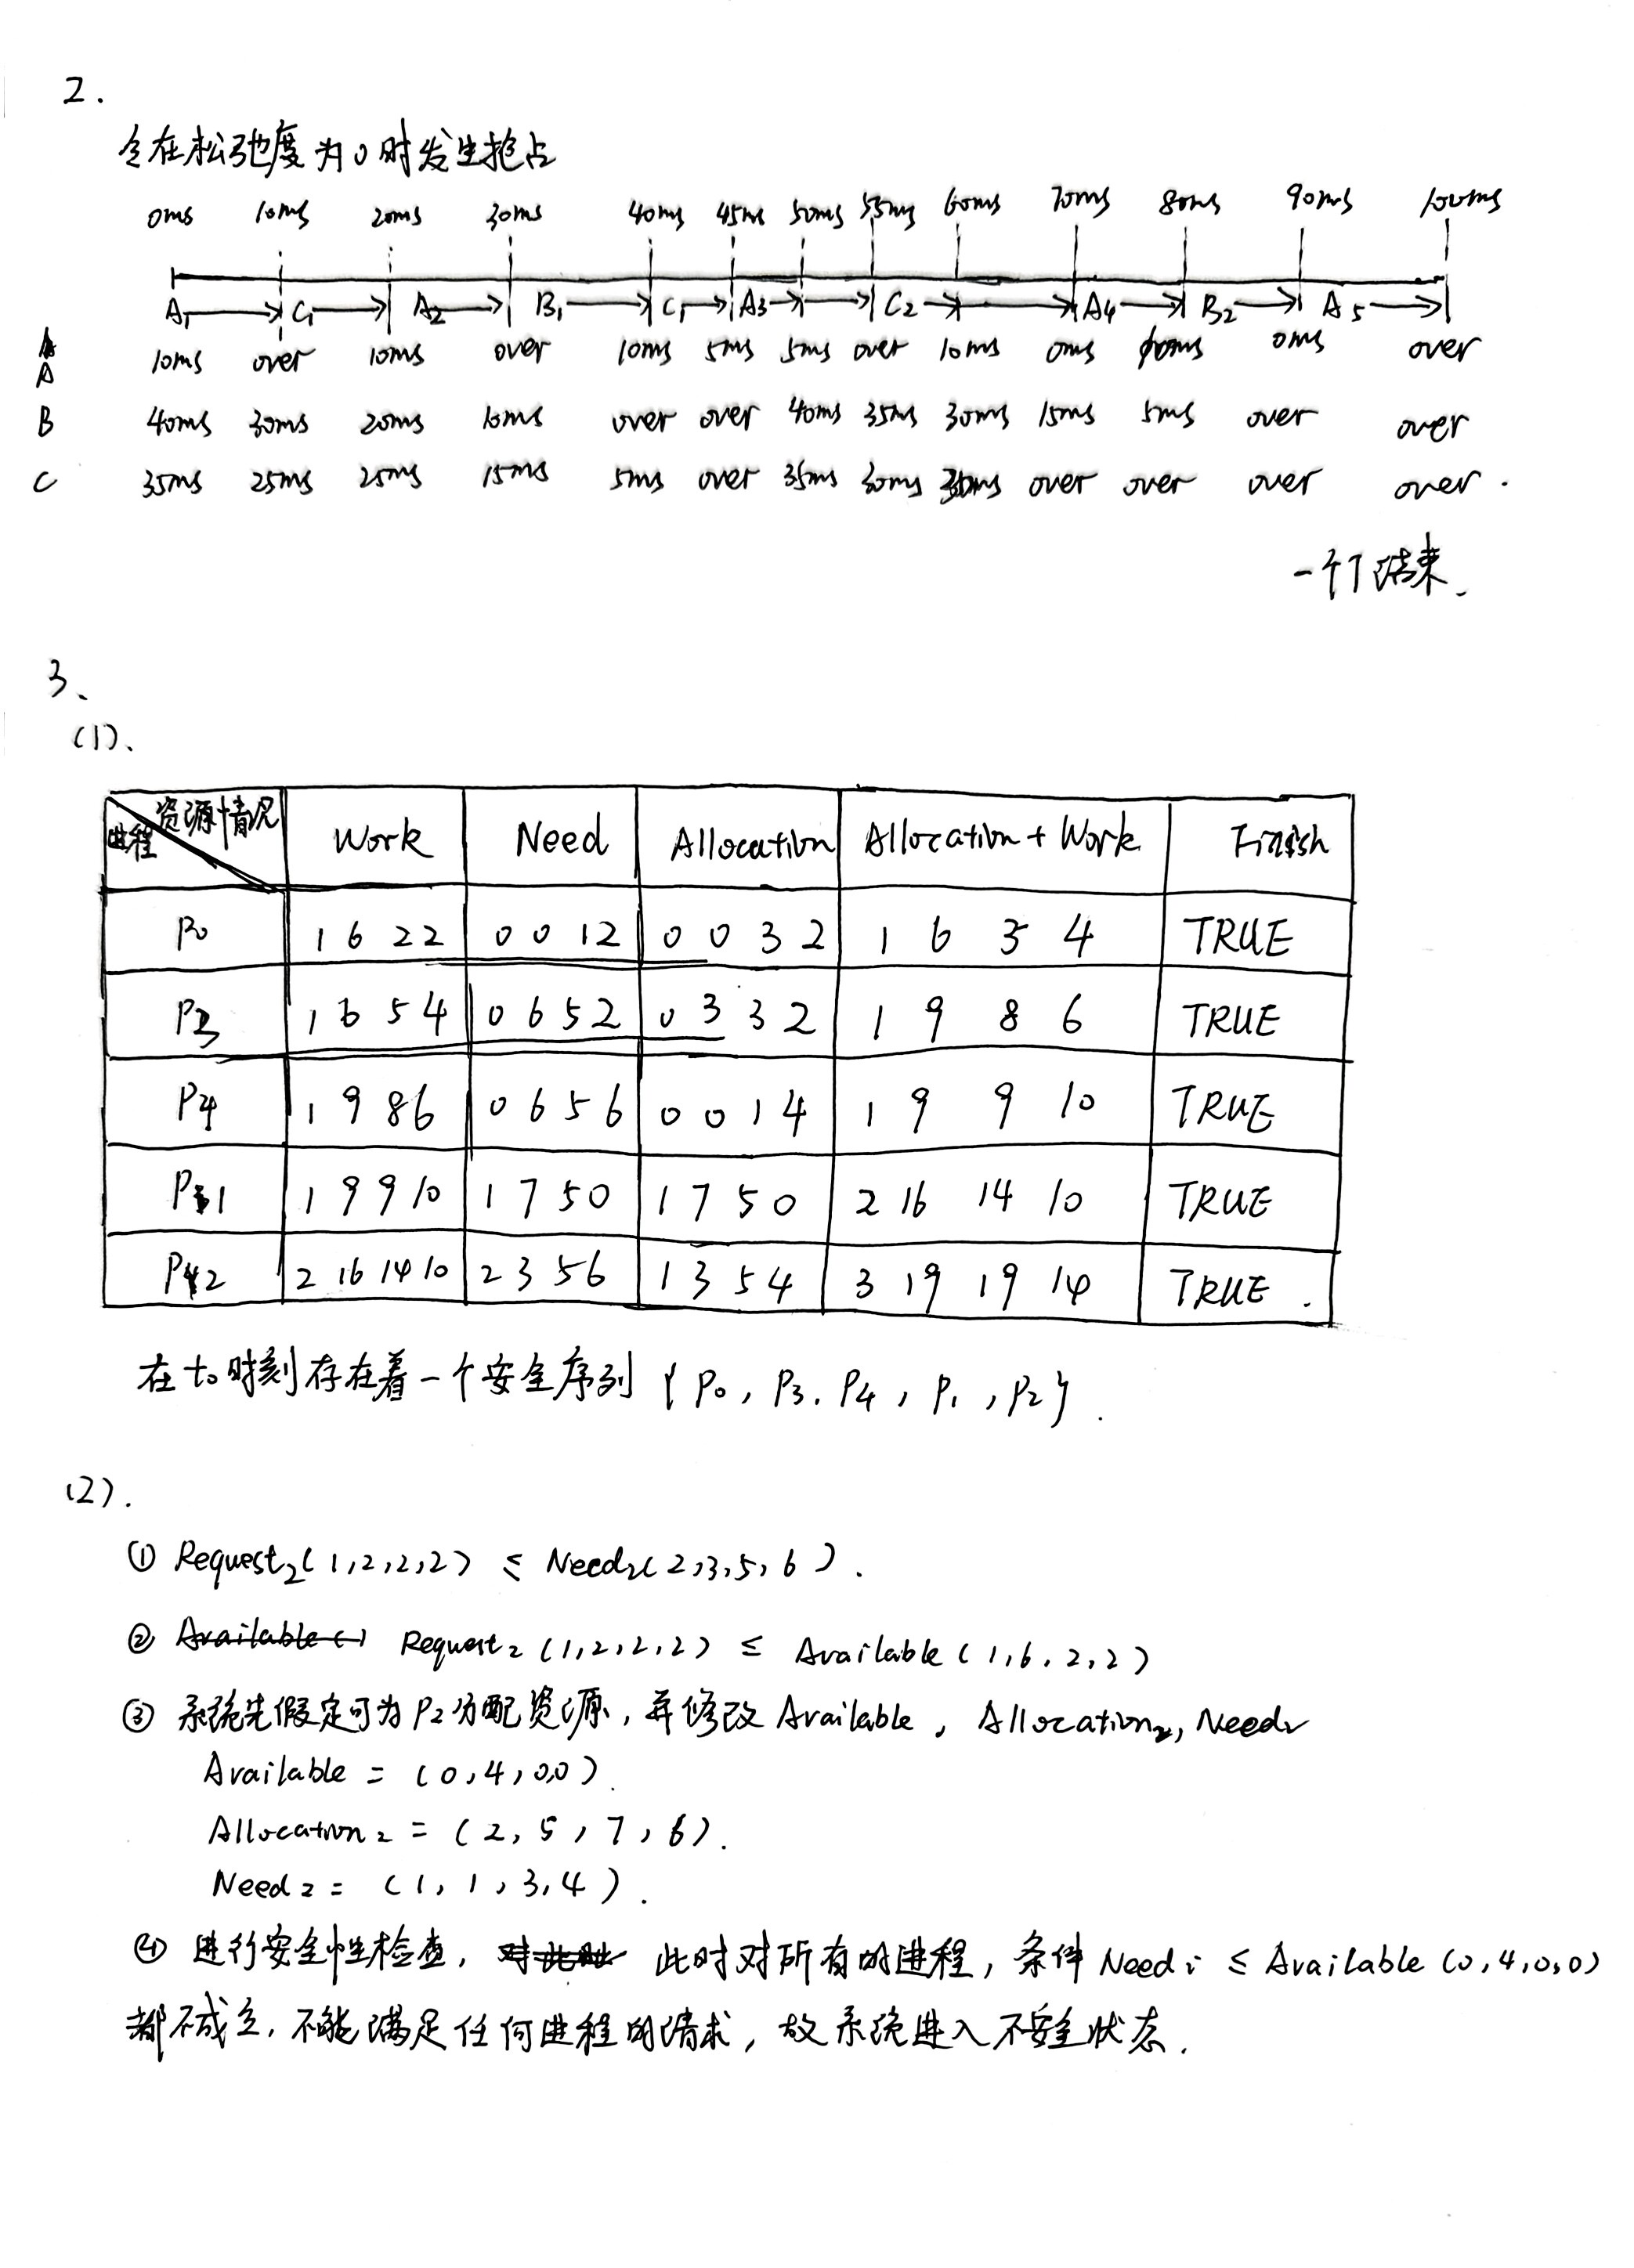 2.
令在松弛度为0时发生抢占
0ms 10ms 20ms 30ms 40ms 45ms 50ms 55ms 60ms 70ms 80ms 90ms 100ms
A₁ C₁ A₂ B₁ C₁ A3 C2 A4 B2 A5
A 10ms over 10ms over 10ms 5ms 5ms over 10ms 0ms 0ms over
B 40ms 30ms 20ms 10ms over over 40ms 35ms 30ms 15ms 5ms over over
C 35ms 25ms 25ms 15ms 5ms over 35ms 30ms over over over over.
一个T结束.
3、
(1)、
资源情况 进程 Work Need Allocation Allocation + Work Finish
P0 1 6 2 2 0 0 1 2 0 0 3 2 1 6 5 4 TRUE
P3 1 6 5 4 0 6 5 2 0 3 3 2 1 9 8 6 TRUE
P4 1 9 8 6 0 6 5 6 0 0 1 4 1 9 9 10 TRUE
P1 1 9 9 10 1 7 5 0 1 7 5 0 2 16 14 10 TRUE
P2 2 16 14 10 2 3 5 6 1 3 5 4 3 19 19 14 TRUE.
在t₀时刻存在着一个安全序列{P₀, P3. P4, P₁, P2}.
(2).
① Request₂(1,2,2,2) ≤ Need₂(2,3,5,6).
② Available( ) Request₂(1,2,2,2) ≤ Available(1,6,2,2)
③ 系统先假定可为P2分配资源, 并修改Available, Allocation₂, Need₂
Available = (0,4,0,0).
Allocation₂ = (2,5,7,6).
Need₂ = (1,1,3,4).
④ 进行安全性检查, 对此时 此时对所有的进程, 条件Needi ≤ Available(0,4,0,0)
都不成立. 不能满足任何进程的请求, 故系统进入不安全状态.